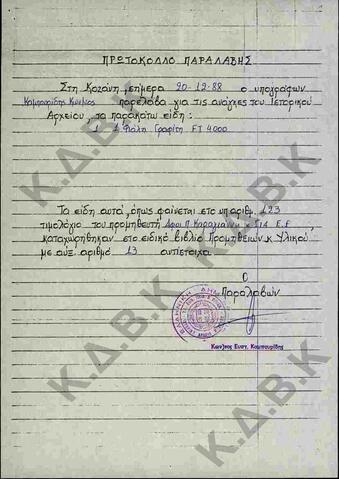 ΠΡΩΤΟΚΟΛΛΟ ΠΑΡΑΛΑΒΗΣ
Στη Κοζάνη, σήμερα 20-12-88 ο υπογράφων
Καμπουρίδης Κων/νος παρέλαβα για τις ανάγκες του Ιστορικού
Αρχείου, τα παρακάτω είδη:
1 Φιάλη Γραφίτη FT 4000
Τα είδη αυτά, όπως φαίνεται στο υπ'αριθμ. 123
τιμολόγιο του προμηθευτή Αφοι Π. & Σια Ε.Ε
καταχωρήθηκαν στο ειδικό βιβλίο Προμηθειών κ Υλικού
με αυξ. αριθμό 13 αντίστοιχα.
Ο
Παραλαβών
ΕΛΛΗΝΙΚΗ ΔΗΜ
Κων/νος Ευστ. Καμπουρίδης
Κ.Δ.Β.Κ
Κ.Δ.Β.Κ
Κ.Δ.Β.Κ